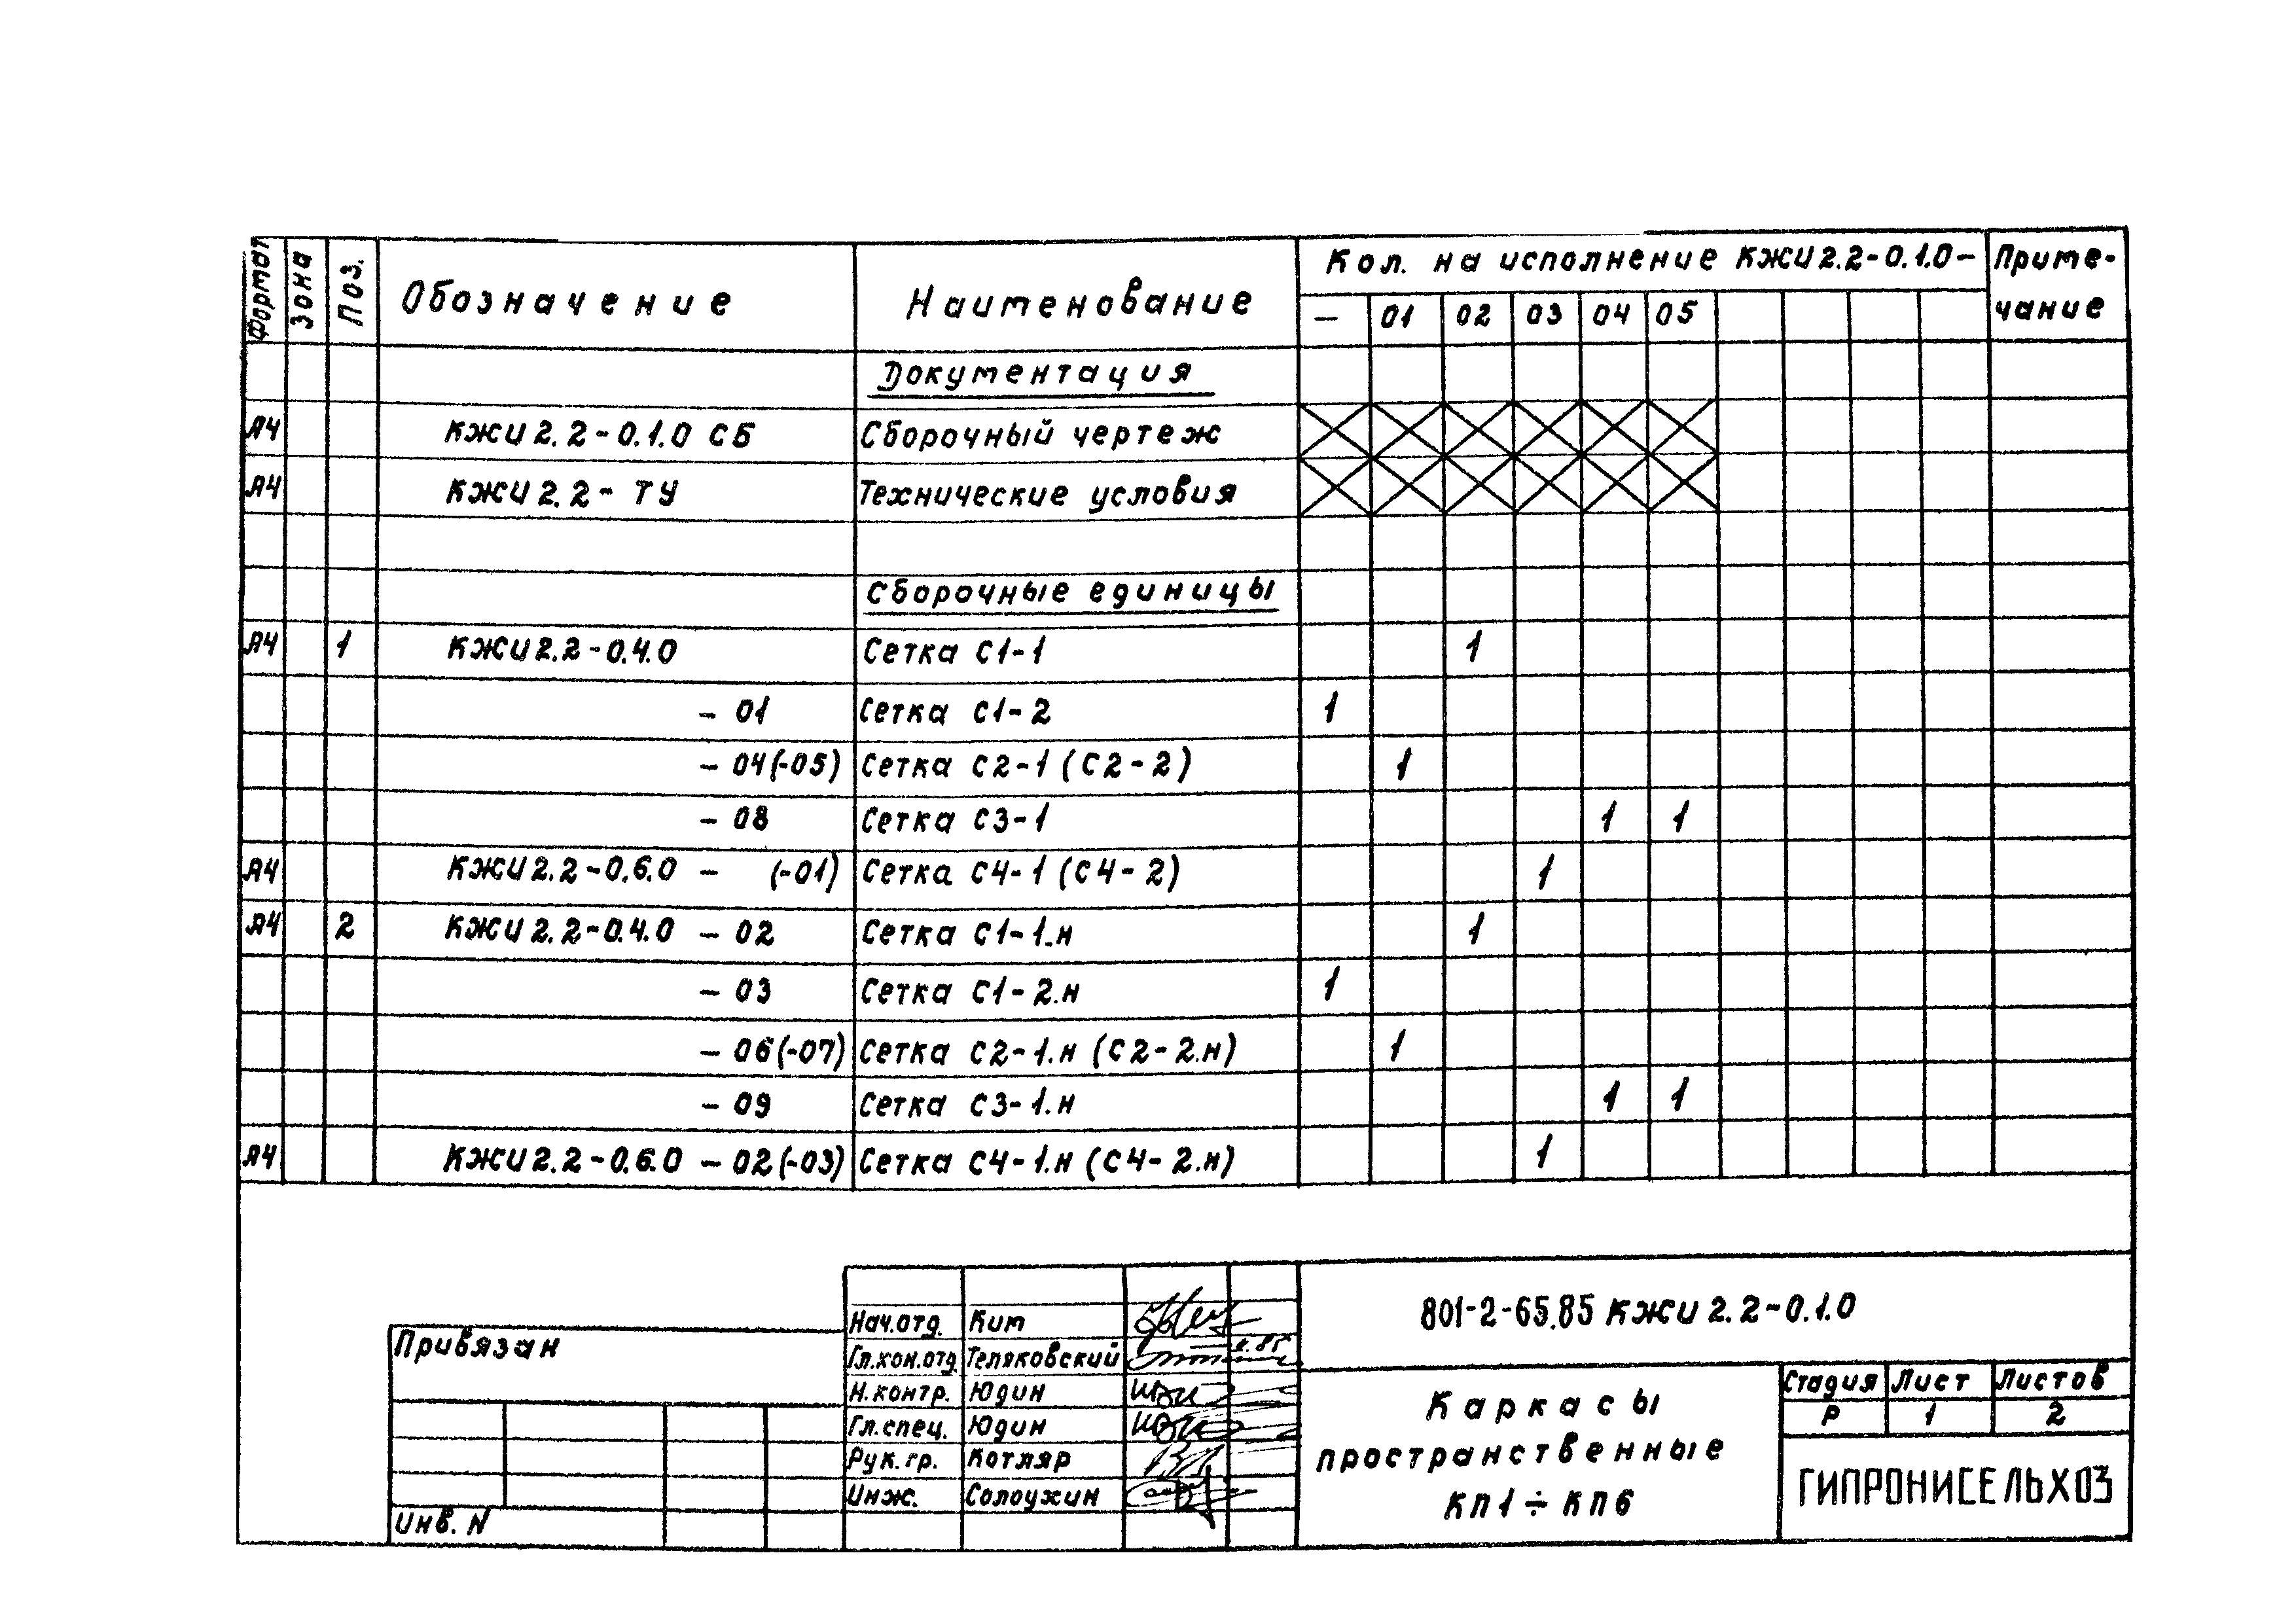 Формат Зона Поз. Обозначение Наименование Кол. на исполнение КЖИ2.2-0.1.0- Приме-
чание
— 01 02 03 04 05
Документация
А4 КЖИ2.2-0.1.0 СБ Сборочный чертеж
А4 КЖИ2.2- ТУ Технические условия
Сборочные единицы
А4 1 КЖИ2.2-0.4.0 Сетка С1-1 1
- 01 Сетка С1-2 1
- 04(-05) Сетка С2-1 (С2-2) 1
- 08 Сетка С3-1 1 1
А4 КЖИ2.2-0.6.0 - (-01) Сетка С4-1 (С4-2) 1
А4 2 КЖИ2.2-0.4.0 - 02 Сетка С1-1.н 1
- 03 Сетка С1-2.н 1
- 06(-07) Сетка С2-1.н (С2-2.н) 1
- 09 Сетка С3-1.н 1 1
А4 КЖИ2.2-0.6.0 - 02(-03) Сетка С4-1.н (С4-2.н) 1
Привязан
Инв. N
Нач.отд. Ким
Гл.кон.отд. Теляковский
Н.контр. Юдин
Гл.спец. Юдин
Рук.гр. Котляр
Инж. Солоухин
801-2-65.85 КЖИ 2.2-0.1.0
Каркасы
пространственные
КП1÷КП6
Стадия Лист Листов
Р 1 2
ГИПРОНИСЕЛЬХОЗ